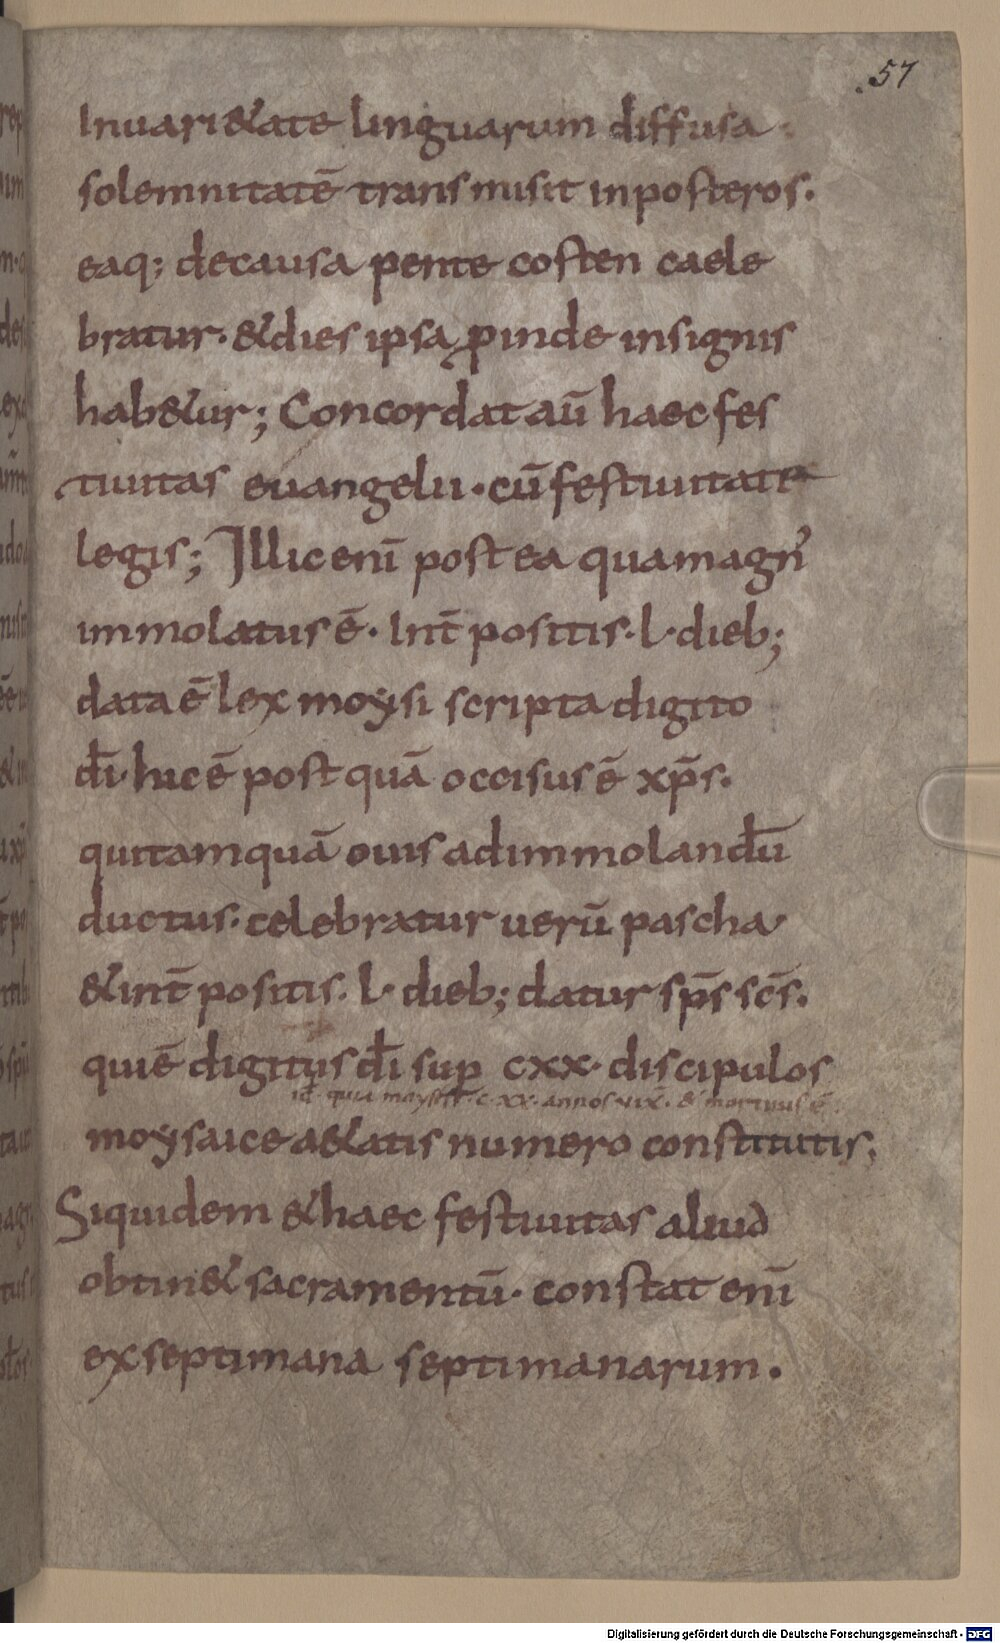 57
Inuari&ate linguarum diffusa
solemnitatē transmisit inposteros.
eaq; decausa pente costen caele
bratur. &dies ipsa ꝓinde insignis
hab&ur; Concordat aū haec fes
tiuitas euangelii. cū festiuitate
legis; Illic enī post ea quam agn᾿
immolatus ē. Int̄ positis. l. dieb;
data ē lex moysi scripta digito
d̄i. hic ē post quā occisus ē xp̄s.
qui tamquā ouis adimmolandū
ductus. celebratur uerū pascha
& int̄ positis. l. dieb; datur sp̄s sc̄s.
qui ē digitus d̄i sup cxx. discipulos
id̄ quia moyses c.xx. annos uix̄. & mortuus ē
moysaice a&atis numero constitutis.
Siquidem & haec festiuitas aliud
obtin& sacramentū. constat enī
ex septimana septimanarum.
Digitalisierung gefördert durch die Deutsche Forschungsgemeinschaft - DFG